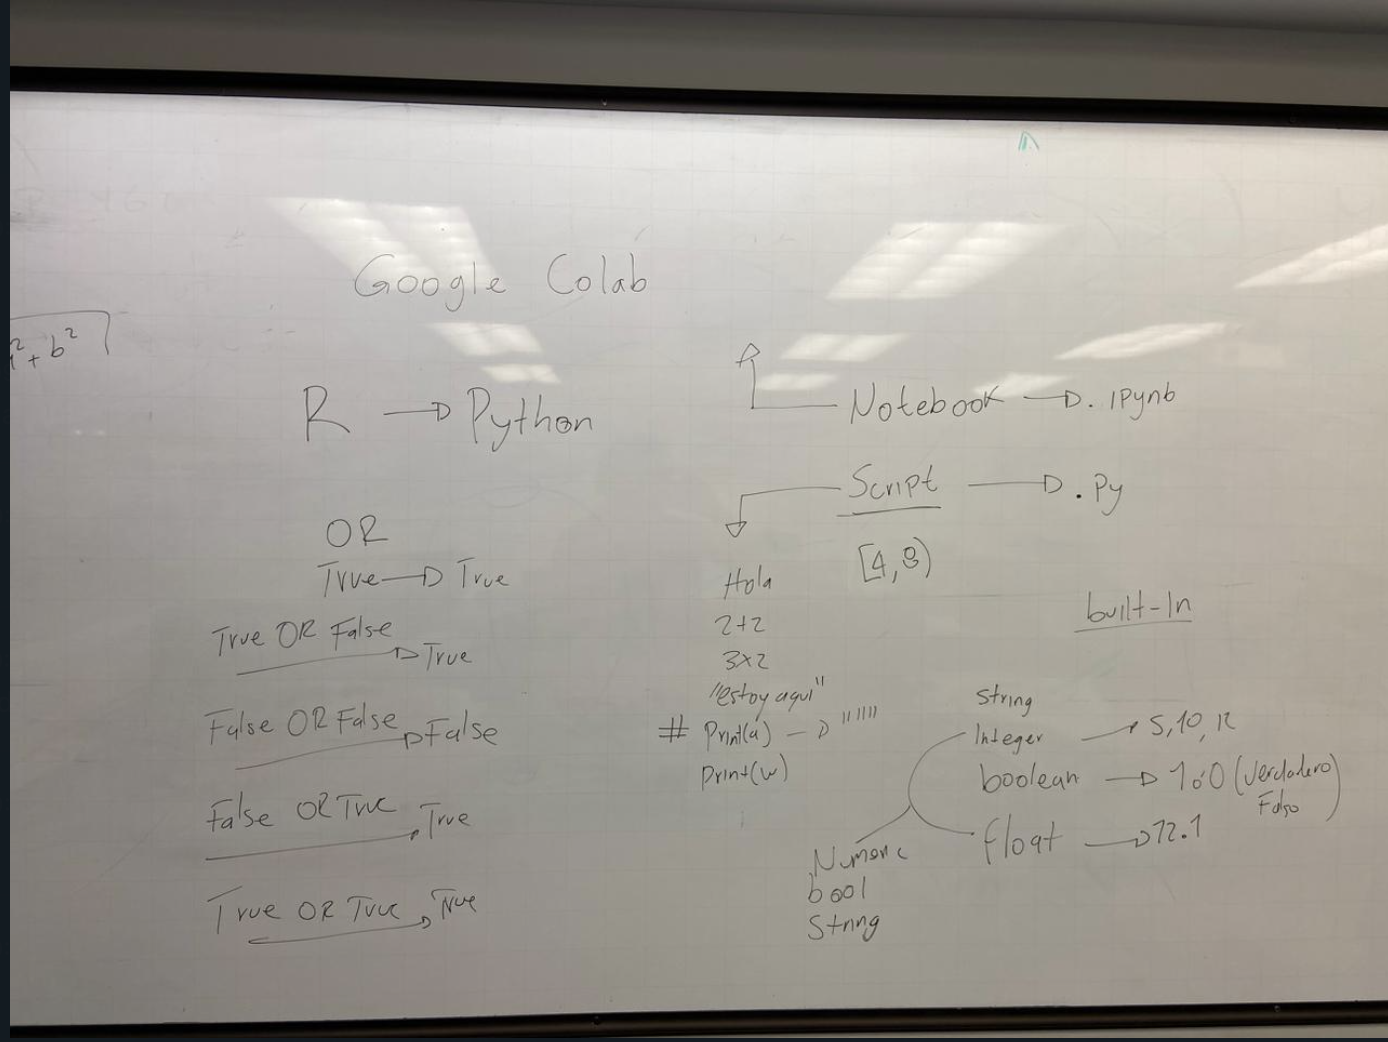 Google Colab
² + b²
R → Python
OR
True → True
True OR False → True
False OR False → False
False OR True → True
True OR True → True
Notebook → .ipynb
Script → .Py
[4,8)
Hola
2+2
3x2
"estoy aqui"
# Print(a) → """"
Print(w)
built-In
String
Integer → 5, 10, 12
boolean → 1 ó 0 (Verdadero
Falso)
float → 72.1
Numeric
bool
String